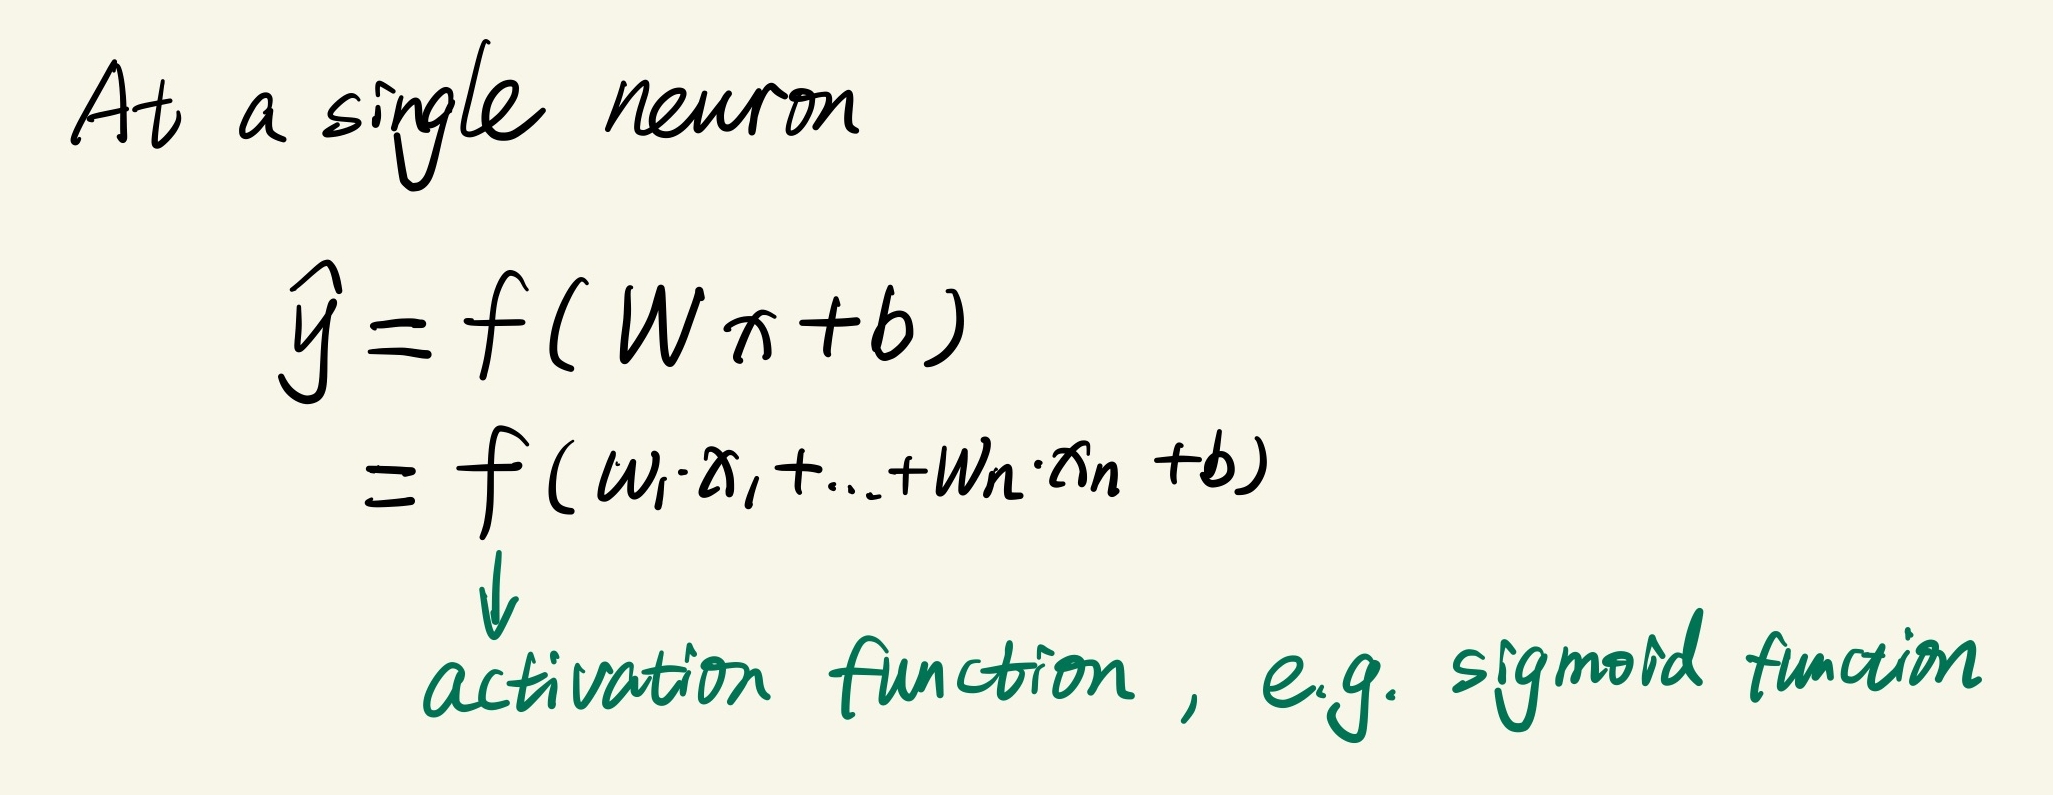 At a single neuron
ŷ = f( W x + b )
= f ( w₁·x₁ + ... + wₙ·xₙ + b )
↓
activation function , e.g. sigmoid function